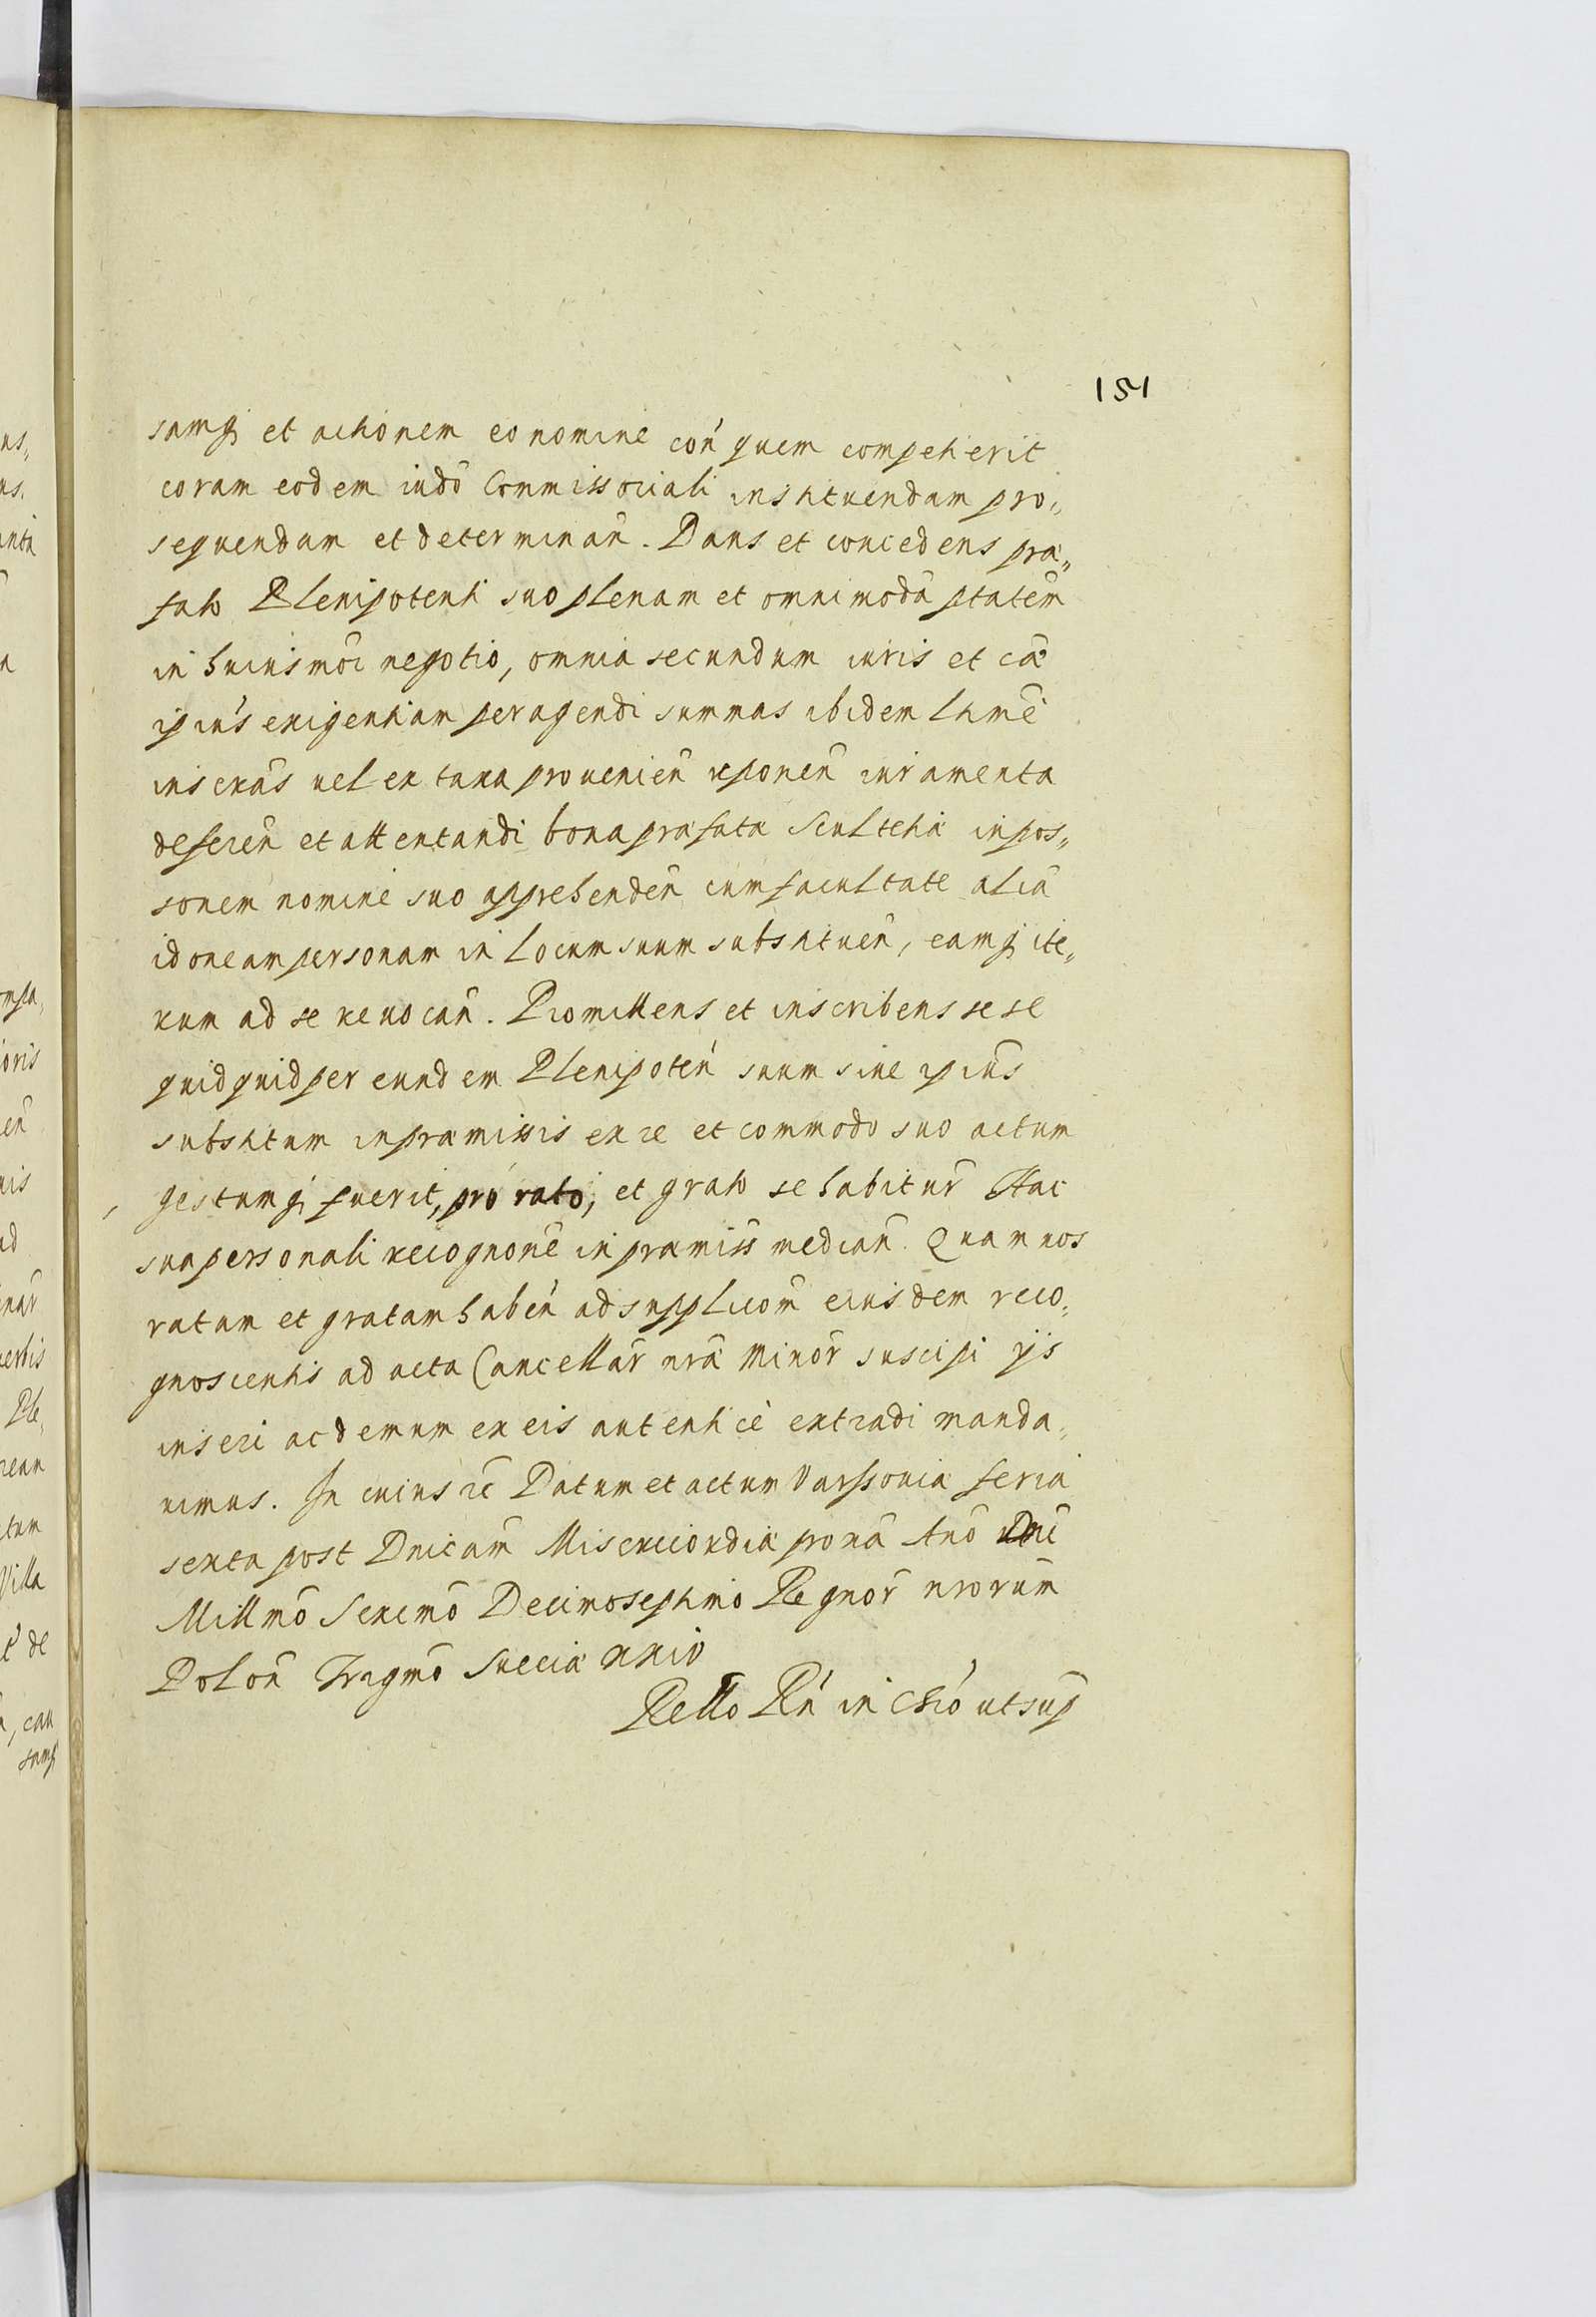 151
samq; et actionem eo nomine con̄ quem competierit
coram eodem iudō Commissoriali instituendam pro„
sequendam et determinan̄. Dans et concedens præ„
fato Plenipotenti suo plenam et omnimodā ptatēm
in huiusmōi negotio, omnia secundum iuris et cæ
ipius exigentiam peragendi summas ibidem Lrmē
inscrās vel ex taxa provenien̄ reponen̄ iuramenta
deferen̄ et attentandi bona præfata Scultetiæ in pos„
sonem nomine suo apprehenden̄ cum facultate aliā
idoneam personam in Locum suum substituen̄, eamq; ite„
rum ad se revocan̄. Promittens et inscribens sese
quidquid per eundem Plenipoten̄ suum sive ipius
substitum in præmissis ex re et commodo suo actum
gestumq; fuerit, pro rato, et grato se habitur̄ Hac
sua personali recognōne in præmiss median̄. Quam nos
ratam et gratam haben̄ ad supplicōm eiusdem reco„
gnoscentis ad acta Cancellar̄ nræ Minor̄ suscipi ijs
inseri ac demum ex eis autenticè extradi manda„
uimus. In cuius rē Datum et actum Varssoviæ feria
sexta post Dnicam̄ Misericordiæ proxā Anō Dnī
Millmō Sexcmō Decimoseptimo Regnor̄ nrorum̄
Polon̄ Trigmō Sueciæ xxiv
Rello Rn̄ in Chrō ut sup
ns„
ns.
oris
en̄
nis
ad
Ple„
ctum
Villa
de
, cau
samq;